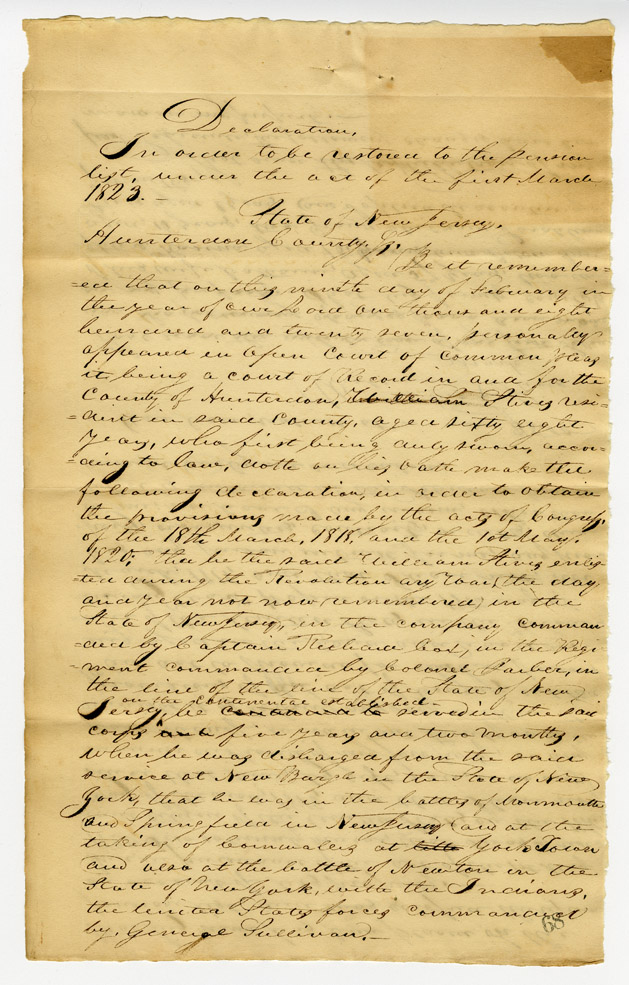 Declaration,
In order to be restored to the pension
list, under the act of the first March
1823.—
State of New Jersey,
Hunterdon County, Ss. Be it remember=
=ed that on this ninth day of February in
the year of our Lord one thousand eight
hundred and twenty seven, personally
appeared in open Court of common pleas
it being a court of Record in and for the
County of Hunterdon, William Stives resi=
=dent in said County, aged sixty eight
years, who first being duly sworn, accor=
=ding to law, doth on his Oath make the
following declaration, in order to obtain
the provisions made by the acts of Congress,
of the 18th March, 1818, and the 1st May,
1820, that he the said William Stives enlis=
ted during the Revolution ary War, (the day
and year not now remembered) in the
State of New Jersey, in the company comman
=ded by Captain Richard Cox, in the Regi
=ment commanded by Colonel Barber, in
the line of the line of the State of New
on the continental established
Jersey, he continued to served in the said
corps and five years and two months,
when he was discharged from the said
service at New Burgh in the State of New
York, that he was in the battles of Monmouth
and Springfield in New Jersey, and at the
taking of Cornwallis at little York Town
and also at the battle of Newton in the
State of New York, with the Indians,
the United States forces commanded
by, General Sullivan.—
68